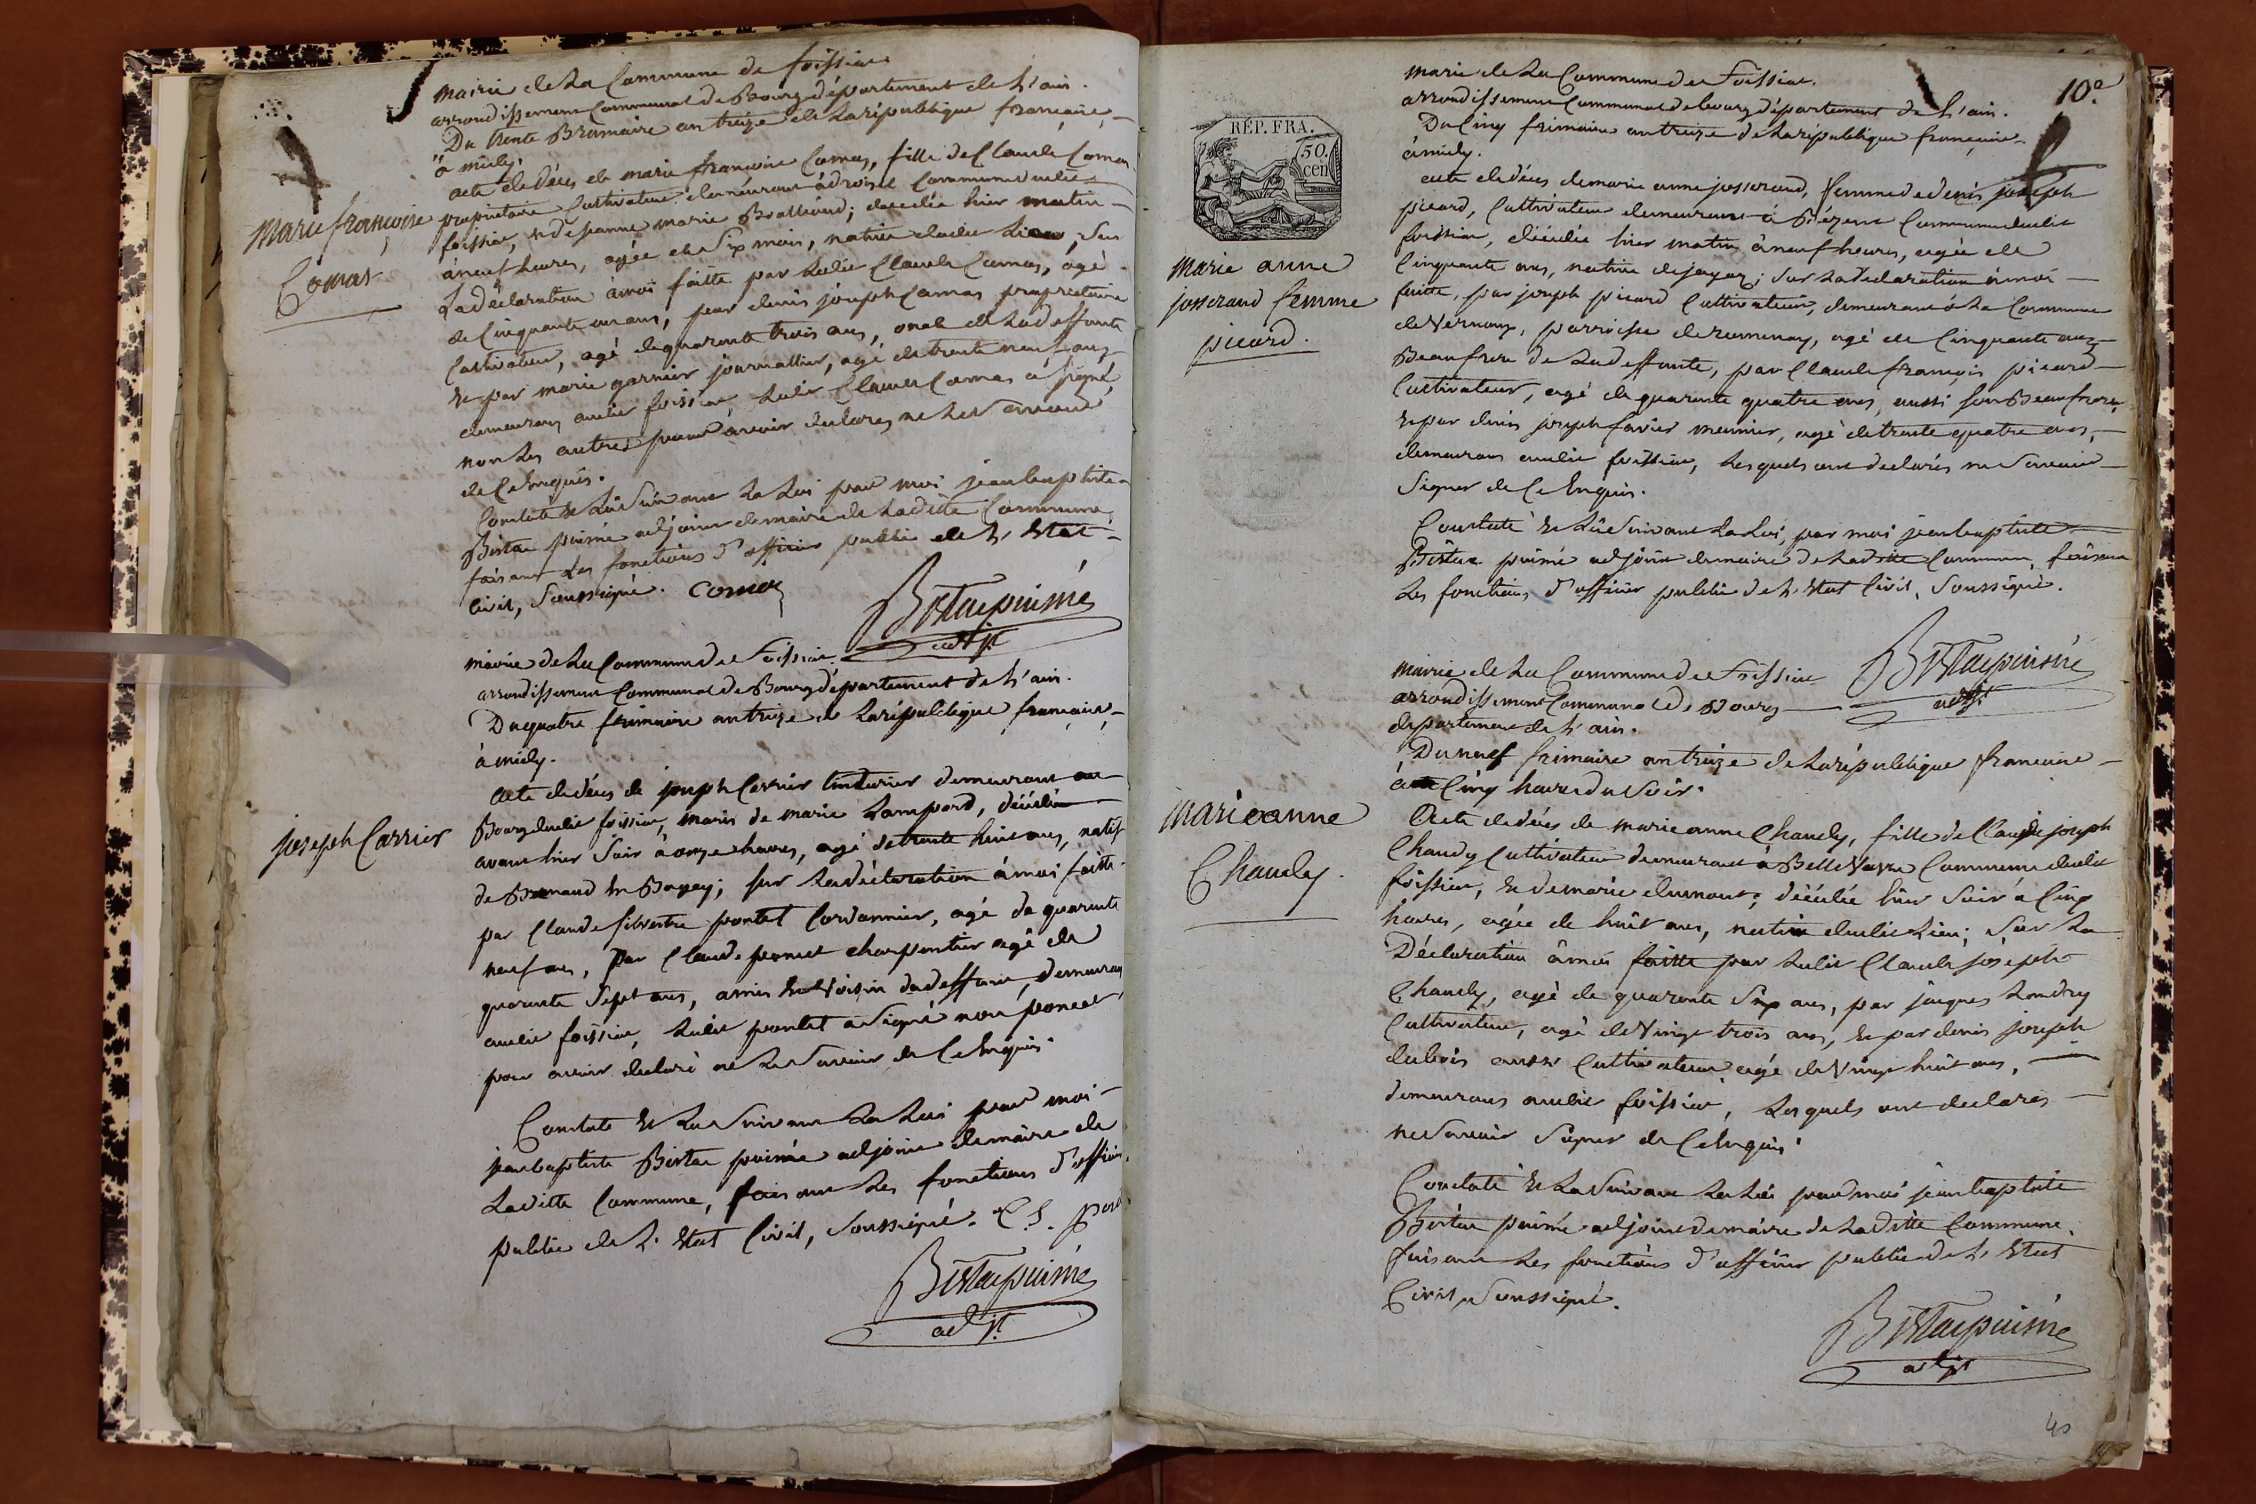 mairie de la Commune de foissiat
arrondissement Communal de Bourg département de L'ain.
Du trente Brumaire an treize de la république française,
à midy.
acte de décès de marie françoise Comas, fille de Claude Comas
propriétaire Cultivateur demeurant à Commune dudit
marie françoise
Comas
foissiat, et de jeanne marie ; décédée hier matin
à neuf heures, agée de Six mois, native dudit Lieu, Sur
La déclaration à moi faitte par Ledit Claude Comas, agé
de Cinquante un ans, par denis joseph Camas propriétaire
Cultivateur, agé de quarante trois ans, oncle de La deffunte
et par marie garnier journallier, agé de trente neuf ans,
demeurans audit foissiat, Ledit Claude Comas a signé,
non Les autres pour avoir declarés ne Le Savoir
de Ce Enquis.
Constaté et Lû Suivant La Loi par moi jean baptiste
Bistac puiné adjoint de maire de Laditte Commune,
faisant Les fonctions d'officier public de L'Etat
Civil, Soussigné. Comas
Bistac puiné
adjt
mairie de La Commune de Foissiat.
arrondissement Communal de Bourg département de L'ain.
Du quatre frimaire an treize de La république française,
à midy.
joseph Carrier
Acte de décès de joseph Carrier tinturier demeurant au
Bourg dudit foissiat, maris de marie Lampord, décédé
avant hier Soir à onze heures, agé de trente huit ans, natif
de en Bugey; sur La déclaration à moi faitte
par Claude silvestre pontet Cordonnier, agé de quarante
neuf ans, Par Claude poncet charpentier agé de
quarante Sept ans, amis et Voisin du deffunt, demeurans
audit foissiat, Ledit pontet a Signé non poncet
pour avoir declaré ne Le Savoir de Ce Enquis.
Constaté et Lu Suivant La Loi par moi
jean baptiste Bistac puiné adjoint de maire de
Laditte Commune, faisant Les fonctions d'officier
public de L'Etat Civil, Soussigné. C. S.
Bistac puiné
adjt
10.e
mairie de La Commune de Foissiat.
arrondissement Communal de bourg département de L'ain.
Du Cinq frimaire an treize de La république française
à midy.
RÉP. FRA.
50.
cen
marie anne
josserand femme
picard.
acte de décès de marie anne josserand, femme de denis joseph
picard, Cultivateur demeurant à Commune dudit
foissiat, décédée hier matin à neuf heures, agée de
Cinquante ans, native de jayat; Sur La déclaration à moi
faitte, par joseph picard Cultivateur, demeurant à La Commune
de Vernoux, parroisse de romenay, agé de Cinquante ans,
Beaufrere de La deffunte, par Claude françois picard
Cultivateur, agé de quarante quatre ans, aussi son Beaufrere,
et par denis joseph favier meunier, agé de trente quatre ans,
demeurans audit foissiat, Lesquels ont declarés ne Savoir
Signer de Ce Enquis.
Constaté et Lû Suivant La Loi, par moi jean baptiste
Bistac puiné adjoint de maire de Laditte Commune, faisant
Les fonctions d'officier public de L'Etat Civil, Soussigné.
Bistac puiné
adjt
mairie de La Commune de Foissiat
arrondissement Communal de Bourg
departement de L'ain.
Du neuf frimaire an treize de La république française
à Cinq heures du Soir.
marie anne
Chaudy.
Acte de décès de marie anne Chaudy, fille de Claude joseph
Chaudy Cultivateur demeurant à Belle Vavre Commune dudit
foissiat, et de marie dumont; décédée hier Soir à Cinq
heures, agée de huit ans, native dudit Lieu; Sur La
Déclaration à moi faitte par Ledit Claude joseph
Chaudy, agé de quarante Six ans, par jacques Landry
Cultivateur, agé de Vingt trois ans, et par denis joseph
dubois aussi Cultivateur agé de Vingt huit ans,
demeurans audit foissiat, Lesquels ont declarés
ne Savoir Signer de Ce Enquis.
Constaté et Lu Suivant La Loi par moi jean baptiste
Bistac puiné adjoint de maire de Laditte Commune
faisant Les fonctions d'officier public de L'Etat
Civil, Soussigné.
Bistac puiné
adjt
40